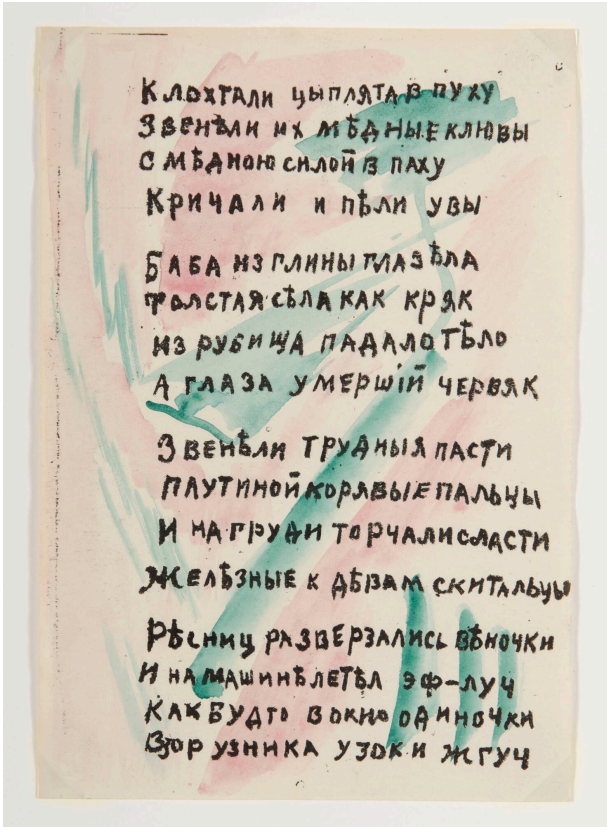 Клохтали цыплята в пуху
Звенѣли их мѣдные клювы
С мѣдною силой в паху
Кричали и пѣли увы
Баба из глины глазѣла
Толстая сѣла как кряк
Из рубища падало тѣло
А глаза умершiй червяк
Звенѣли трудныя пасти
Паутиной корявые пальцы
И на груди торчали сласти
Желѣзные к дѣвам скитальцы
Рѣсниц разверзались вѣночки
И на машинѣ летѣл эф-луч
Как будто в окно одиночки
Взор узника узок и жгуч